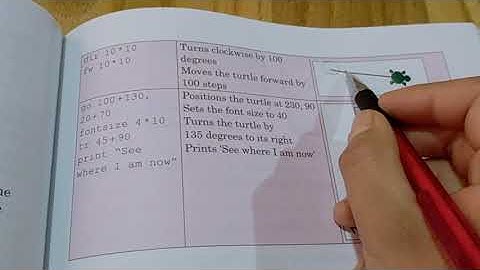 dir 10*10
fw 10*10
Turns clockwise by 100
degrees
Moves the turtle forward by
100 steps
go 100+130,
20+70
fontsize 4*10
tr 45+90
print "See
where I am now"
Positions the turtle at 230, 90
Sets the font size to 40
Turns the turtle by
135 degrees to its right
Prints 'See where I am now'